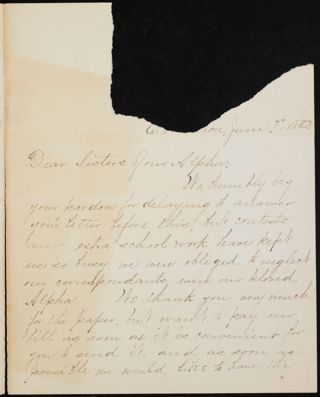 June 7th 1882
Dear Sisters of our Alpha;
We humbly beg
your pardon for delaying to answer
your letter before this, but contests
and extra school work have kept
us so busy we were obliged to neglect
our correspondents, even our beloved
Alpha. We thank you very much
for the paper, but want to pay our
bill as soon as it is convenient for
you to send it, and as soon as
possible we would like to have the